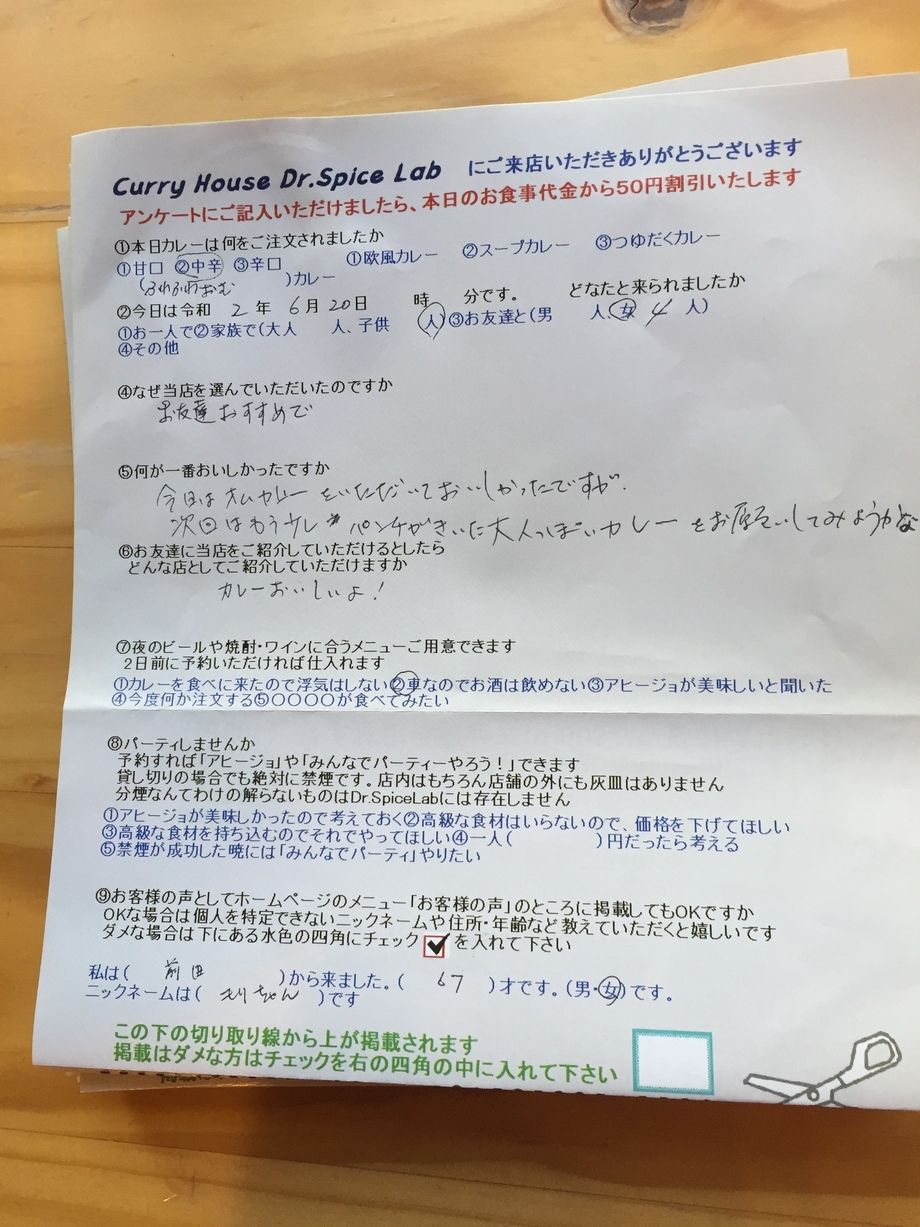 Curry House Dr.Spice Lab にご来店いただきありがとうございます
アンケートにご記入いただけましたら、本日のお食事代金から50円割引いたします
①本日カレーは何をご注文されましたか
①甘口 ②中辛 ③辛口 ①欧風カレー ②スープカレー ③つゆだくカレー
(ふわふわおむ )カレー
②今日は令和 2 年 6月20日 時 分です。 どなたと来られましたか
①お一人で②家族で(大人 人、子供 人)③お友達と(男 人、女 4 人)
④その他
④なぜ当店を選んでいただいたのですか
お友達おすすめで
⑤何が一番おいしかったですか
今日はオムカレーをいただいておいしかったですが、
次回はもう少し パンチがきいた大人っぽいカレーをお願いしてみようかな
⑥お友達に当店をご紹介していただけるとしたら
どんな店としてご紹介していただけますか
カレーおいしいよ!
⑦夜のビールや焼酎・ワインに合うメニューご用意できます
2日前に予約いただければ仕入れます
①カレーを食べに来たので浮気はしない②車なのでお酒は飲めない③アヒージョが美味しいと聞いた
④今度何か注文する⑤〇〇〇〇が食べてみたい
⑧パーティしませんか
予約すれば「アヒージョ」や「みんなでパーティーやろう!」できます
貸し切りの場合でも絶対に禁煙です。店内はもちろん店舗の外にも灰皿はありません
分煙なんてわけの解らないものはDr.SpiceLabには存在しません
①アヒージョが美味しかったので考えておく②高級な食材はいらないので、価格を下げてほしい
③高級な食材を持ち込むのでそれでやってほしい④一人( )円だったら考える
⑤禁煙が成功した暁には「みんなでパーティ」やりたい
⑨お客様の声としてホームページのメニュー「お客様の声」のところに掲載してもOKですか
OKな場合は個人を特定できないニックネームや住所・年齢など教えていただくと嬉しいです
ダメな場合は下にある水色の四角にチェック を入れて下さい
私は( 前田 )から来ました。( 67 )才です。(男・女)です。
ニックネームは( もりちゃん )です
この下の切り取り線から上が掲載されます
掲載はダメな方はチェックを右の四角の中に入れて下さい